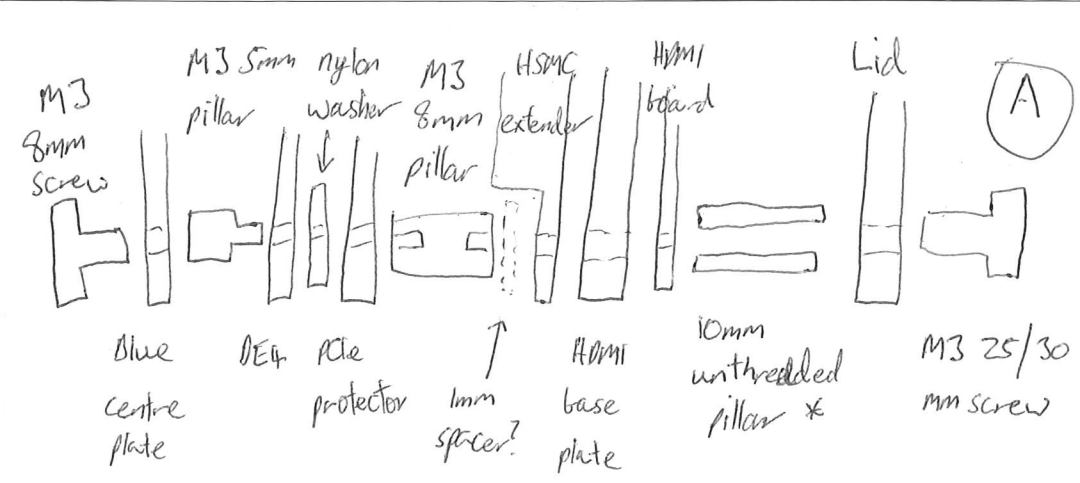 M3
8mm
screw
M3 5mm
pillar
nylon
washer
M3
8mm
pillar
HSMC
extender
HDMI
board
Lid
A
Blue
centre
plate
DE4
PCIe
protector
1mm
spacer?
HDMI
base
plate
10mm
unthreaded
pillar *
M3 25/30
mm screw